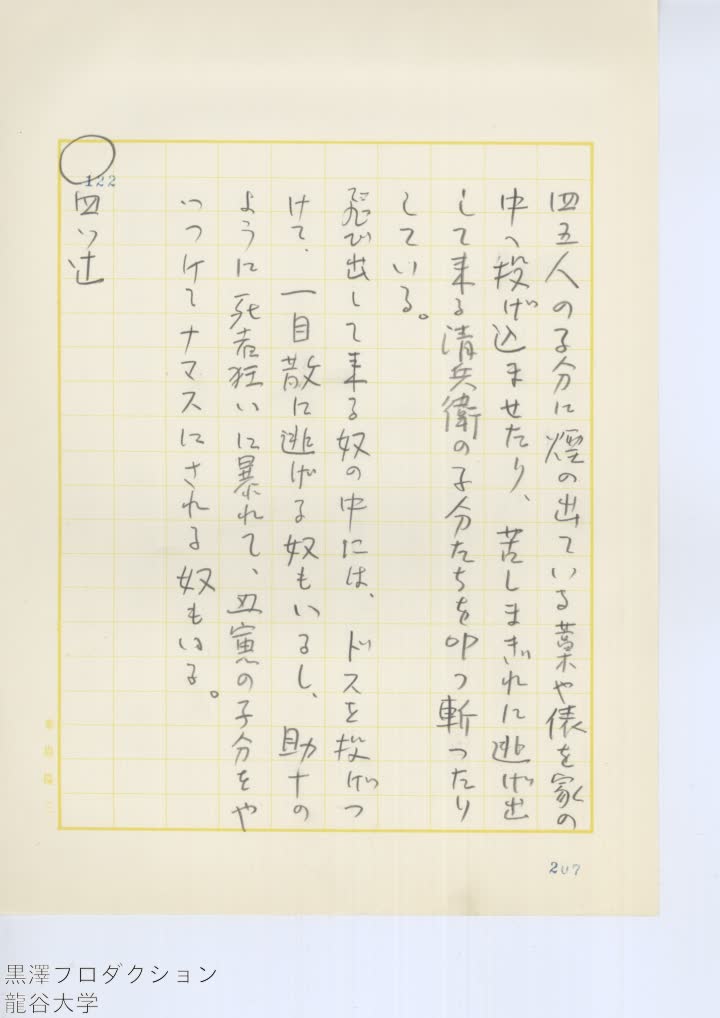 四五人の子分に煙の出ている藁や俵を家の
中へ投げ込ませたり、苦しまぎれに逃げ出
して来る清兵衛の子分たちを叩っ斬ったり
している。
飛び出して来る奴の中には、ドスを投げつ
けて、一目散に逃げる奴もいるし、助十の
ように死者狂いに暴れて、丑寅の子分をや
っつけてナマスにされる奴もいる。
122
四ツ辻
207
黒澤プロダクション
龍谷大学